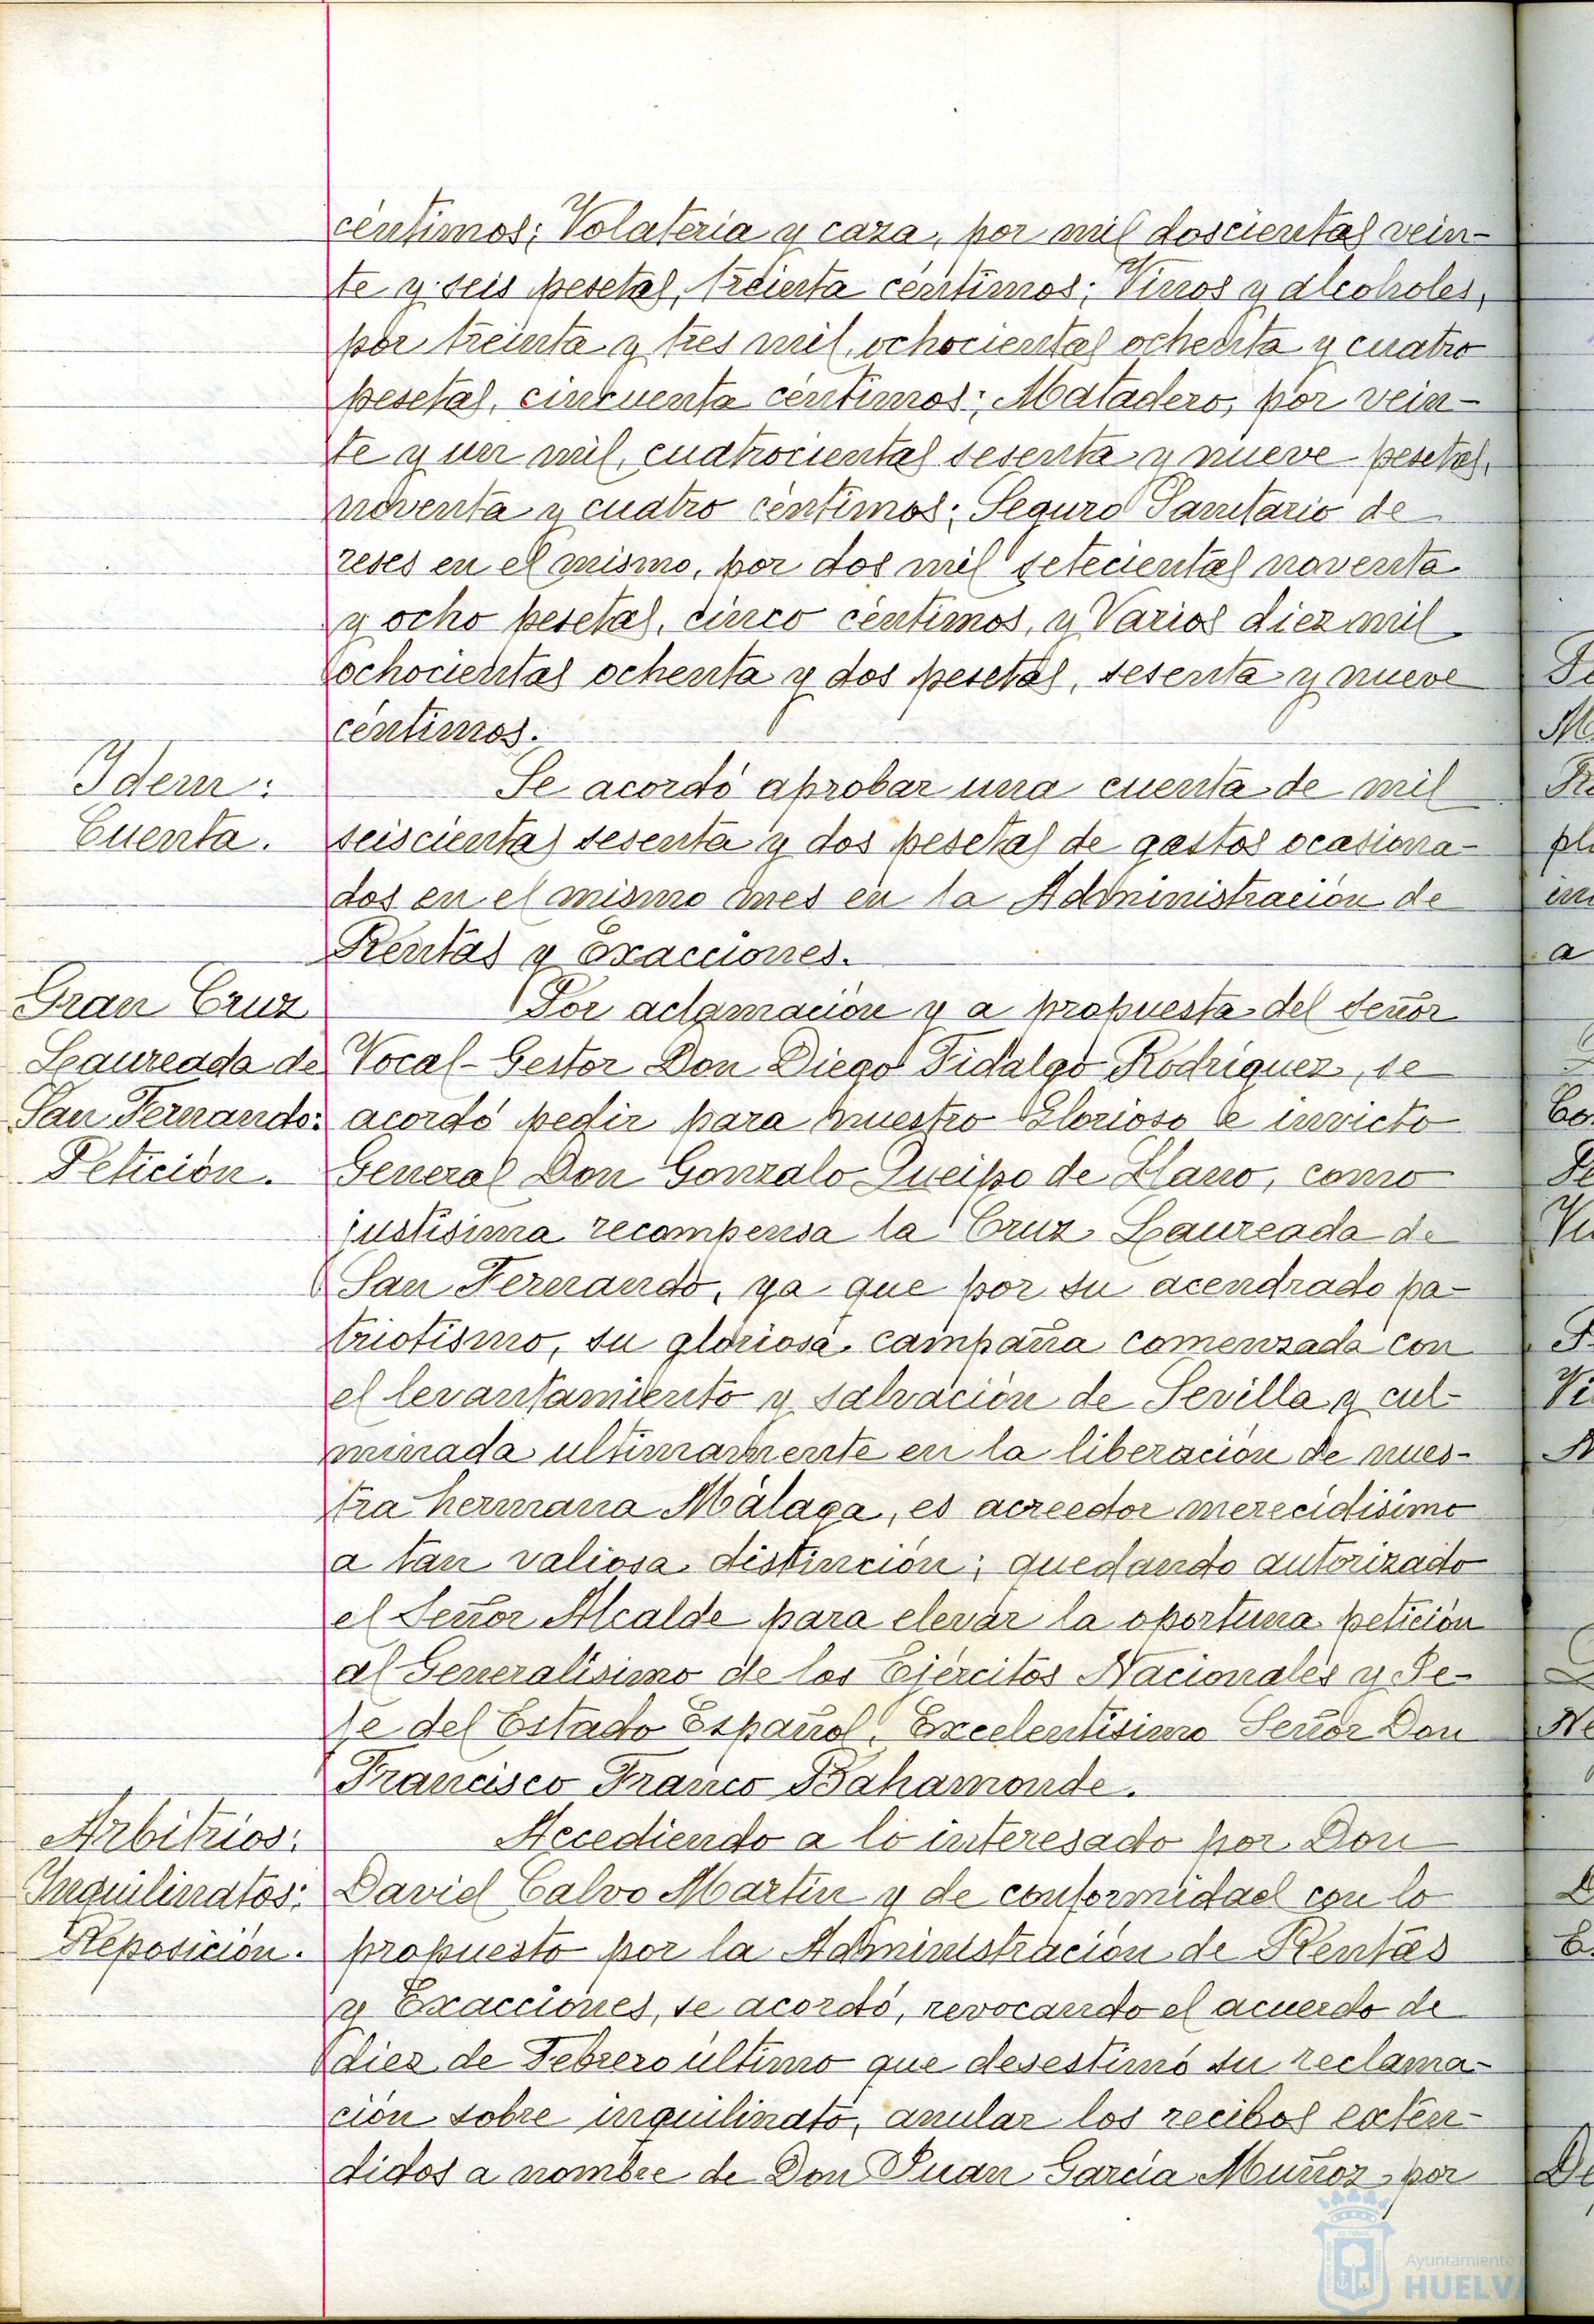 céntimos; Volatería y caza, por mil doscientas vein-
te y seis pesetas, treinta céntimos; Vinos y alcoholes,
por treinta y tres mil, ochocientas ochenta y cuatro
pesetas, cincuenta céntimos; Matadero, por vein-
te y un mil, cuatrocientas sesenta y nueve pesetas,
noventa y cuatro céntimos; Seguro Sanitario de
reses en el mismo, por dos mil setecientas noventa
y ocho pesetas, cinco céntimos, y Varios diez mil
ochocientas ochenta y dos pesetas, sesenta y nueve
céntimos.
Idem:
Cuenta.
Se acordó aprobar una cuenta de mil
seiscientas sesenta y dos pesetas de gastos ocasiona-
dos en el mismo mes en la Administración de
Rentas y Exacciones.
Gran Cruz
Laureada de
San Fernando:
Petición.
Por aclamación y a propuesta del señor
Vocal-Gestor Don Diego Fidalgo Rodríguez, se
acordó pedir para nuestro Glorioso e invicto
General Don Gonzalo Queipo de Llano, como
justísima recompensa la Cruz Laureada de
San Fernando, ya que por su acendrado pa-
triotismo, su gloriosa campaña comenzada con
el levantamiento y salvación de Sevilla y cul-
minada ultimamente en la liberación de nues-
tra hermana Málaga, es acreedor merecidísimo
a tan valiosa distinción; quedando autorizado
el Señor Alcalde para elevar la oportuna petición
al Generalísimo de los Ejércitos Nacionales y Je-
fe del Estado Español, Excelentísimo Señor Don
Francisco Franco Bahamonde.
Arbitrios:
Inquilinatos:
Reposición.
Accediendo a lo interesado por Don
David Calvo Martín y de conformidad con lo
propuesto por la Administración de Rentas
y Exacciones, se acordó, revocando el acuerdo de
diez de Febrero último que desestimó su reclama-
ción sobre inquilinato, anular los recibos exten-
didos a nombre de Don Juan García Muñoz, por
Ayuntamiento
HUELVA